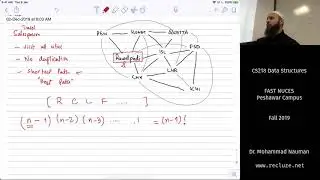 02-Dec-2019 at 8:03 AM
Travel
Salesperson
- visit all cities
- No duplication
- Shortest Path
"Best Path"
PSH
QUETTA
Rawalpindi
ISL
FSD
LHR
KHI
[ R C L F .... ]
(n-1) (n-2) (n-3) ..... 1 = (n-1)!
CS218 Data Structures
FAST NUCES
Peshawar Campus
Fall 2019
Dr. Mohammad Nauman
www.recluze.net